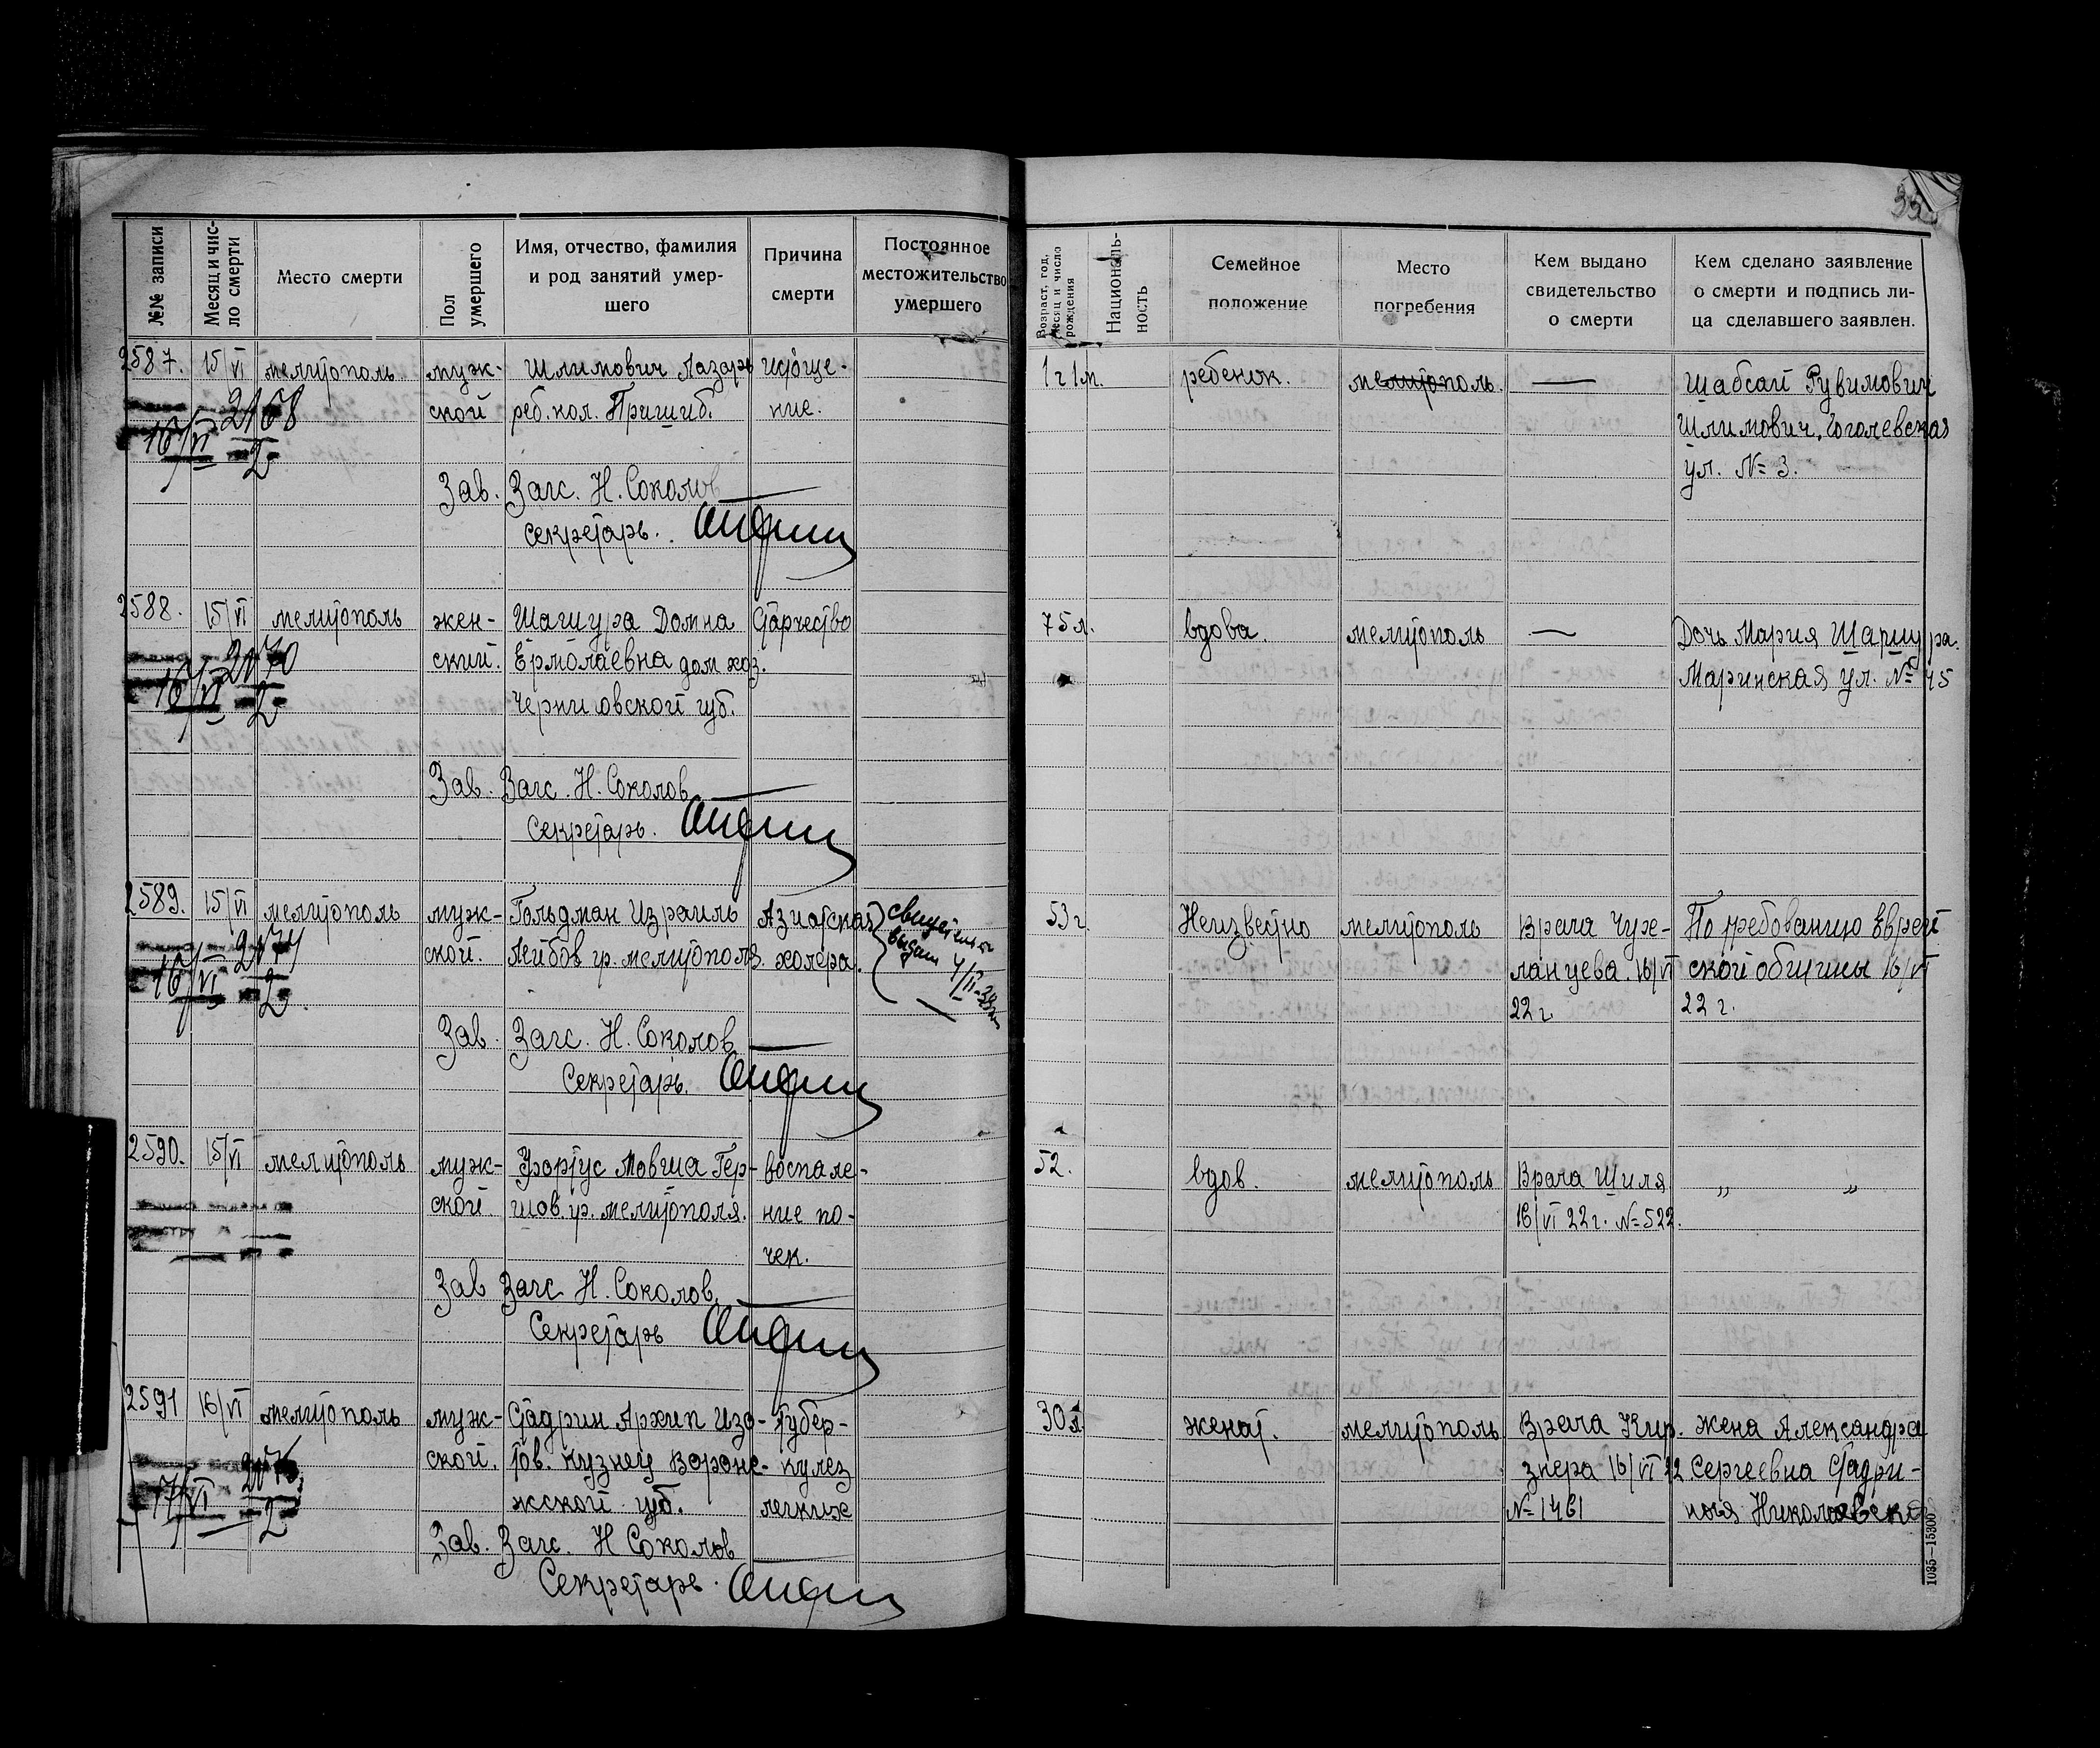 35
№№ записи
Месяц и чис-
ло смерти
Место смерти
Пол
умершего
Имя, отчество, фамилия
и род занятий умер-
шего
Причина
смерти
Постоянное
местожительство
умершего
Возраст, год,
месяц и число
рождения
Националь-
ность
Семейное
положение
Место
погребения
Кем выдано
свидетельство
о смерти
Кем сделано заявление
о смерти и подпись ли-
ца сделавшего заявлен.
2587. 15/VI мелитополь муж- Шлимович Лазарь истоще- 1 г 1 м. ребенок. мелитополь. — Шабсай Рувимович
2168 ской реб. кол. Пришиб. ние. Шлимович, Гоголевская
16/VI 2 ул. № 3.
Зав. Загс. Н. Соколов
Секретарь.
2588. 15/VI мелитополь жен- Домна Старчество 75 л. вдова. мелитополь — Дочь Мария
2170 ский. Ермолаевна дом. хоз. Маринская ул. №
16/VI 2 Черниговской губ.
Зав. Загс. Н. Соколов
Секретарь.
2589. 15/VI мелитополь муж- Гольдман Израиль Азиатская 53 г. Неизвестно мелитополь Врача По требованию Еврей
ской. Лейбов гр. мелитополя. холера. 16/VI ской общины 16/VI
16/VI 2 22 г. 22 г.
Зав. Загс. Н. Соколов
Секретарь.
2590. 15/VI мелитополь муж- Фортус Мовша Гер- воспале- 52. вдов. мелитополь Врача Шиля „ „
ской. шов. гр. мелитополя. ние по- 16/VI 22 г. № 522.
чек.
Зав Загс Н. Соколов.
Секретарь
2591 16/VI мелитополь муж- Стадрин Архип Изо- Тубер- 30 л. женат. мелитополь Врача Кир. жена Александра
ской. тов. кузнец Вороне- кулез знера 16/VI 22 Сергеевна Стадри-
17/VI 2 жской губ. легких № 1461 ная
Зав. Загс. Н Соколов
Секретарь.
1035—15300